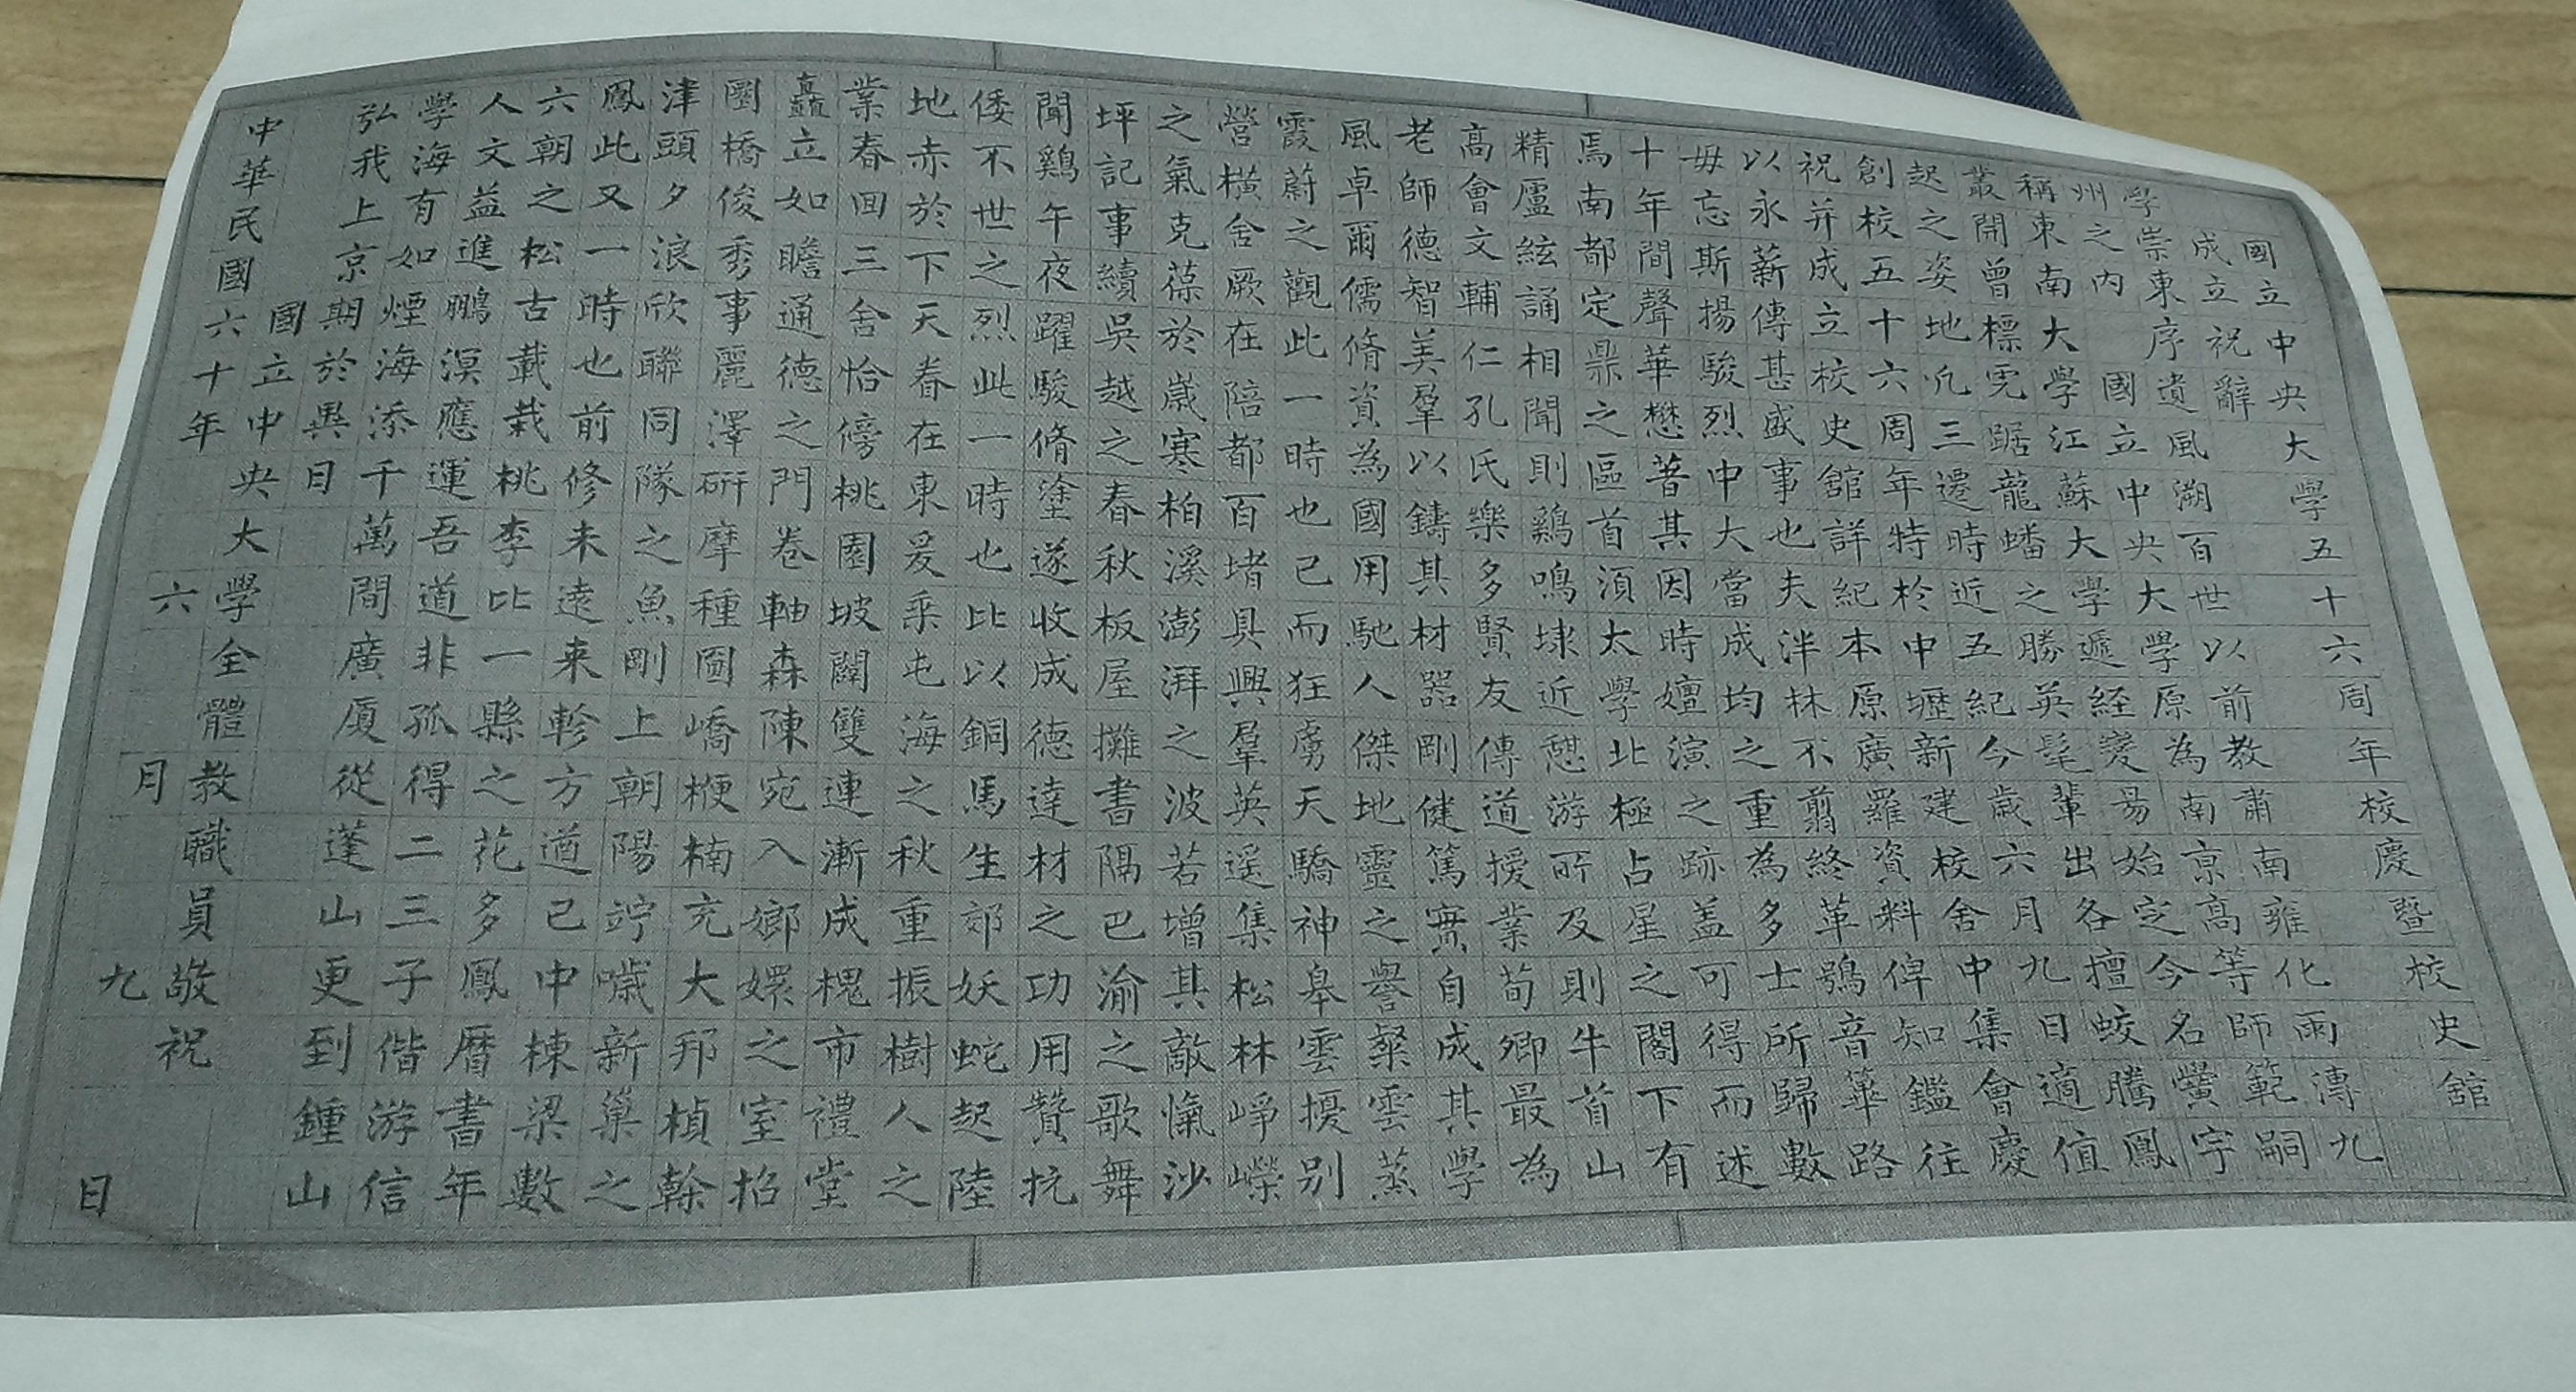 國立中央大學五十六周年校慶暨校史館
成立祝辭
學崇東序遺風溯百世以前教肅南雍化雨漙九
州之內 國立中央大學原為南京高等師範嗣
稱東南大學江蘇大學遞經變易始定今名黌宇
叢開曾標虎踞龍蟠之勝英髦輩出各擅蛟騰鳳
起之姿地凡三遷時近五紀今歲六月九日適值
創校五十六周年特於中壢新建校舍中集會慶
祝并成立校史館詳紀本原廣羅資料俾知鑑往
以永薪傳甚盛事也夫泮林不翦終革鴞音蓽路
毋忘斯揚駿烈中大當成均之重為多士所歸數
十年間聲華懋著其因時嬗演之跡蓋可得而述
焉南都定鼎之區首須太學北極占星之閣下有
精廬絃誦相聞則鷄鳴埭近憩游所及則牛首山
高會文輔仁孔氏樂多賢友傳道援業荀卿最為
老師德智美羣以鑄其材器剛健篤實自成其學
風卓爾儒脩資為國用馳人傑地靈之譽粲雲蒸
霞蔚之觀此一時也已而狂虜天驕神皋雲擾別
營橫舍厥在陪都百堵具興羣英遥集松林崢嶸
之氣克葆於歲寒柏溪澎湃之波若增其敵愾沙
坪記事續吳越之春秋板屋攤書隔巴渝之歌舞
聞鷄午夜躍駿脩塗遂收成德達材之功用贊抗
倭不世之烈此一時也比以銅馬生郊妖蛇起陸
地赤於下天眷在東爰乘屯海之秋重振樹人之
業春回三舍恰傍桃園坡闢雙連漸成槐市禮堂
矗立如瞻通德之門卷軸森陳宛入嫏嬛之室招
圜橋俊秀事麗澤研摩種圓嶠楩楠充大邦楨榦
津頭夕浪欣聯同隊之魚剛上朝陽竚噦新巢之
鳳此又一時也前修未遠来軫方遒已中棟梁數
六朝之松古載栽桃李比一縣之花多鳳曆書年
人文益進鵬溟應運吾道非孤得二三子偕游信
學海有如煙海添千萬間廣厦從蓬山更到鍾山
弘我上京期於異日
國立中央大學全體教職員敬祝
中華民國六十年六月九日